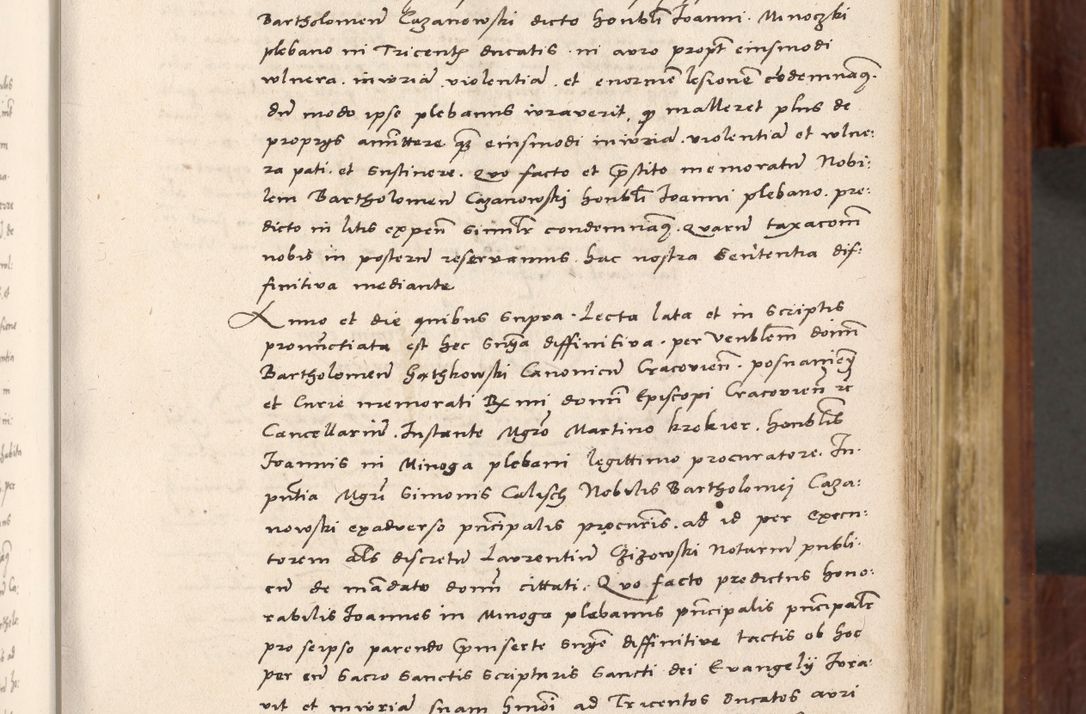 Bartholomeũ Cazanowski dicto honbli Joanni . Minoczki
plebano in Tricentis ducatis . in auro propt̃ eiusmodi
vulnera . iniuriã violentiã et enormẽ lesionẽ cõdemnãq.
dũ modo ipse plebanus iuraverit, qz malleret plus de
proprys amittere qz eiusmodi iniuriã . violentiã et vulne:
ra pati . et sustinere . Quo facto et p̃stito memoratũ Nobi:
lem Bartholomeũ Cazanowski honbli Joanni plebano . pre:
dicto in litis expeñ similr̃ condemnãq. Quarũ taxacom̃
nobis in posterũ reservamus . hac nostra sententia dif:
finitiva mediante
Anno et die quibus supra . Lecta lata et in scriptis
pronũctiata est hec snĩa diffinitiva . per Venblem domĩ
Bartholomeũ Canonicũ Cracovieñ . posnanieñ
et Curie memorati Rx mi domĩ Episcopi Cracovieñ rc
Cancellariũ . Instante Mgr̃o Martino krokier . honblis
Joannis in Minoga plebani legittimo procuratore . In
pñtia Mgri Simonis Calisch Nobilis Bartholomej Caza:
nowski exadverso pñcipalis procur̃is . ad id per execu:
torem als discretũ Laurentiũ Czizowski Notariũ publi
cũ de mãdato domĩ cittati . Quo facto predictus hono:
rabilis Joannes in Minoga plebanus pñcipalis pñcipalr̃
pro seipso parendo p̃inserte snĩe diffinitive tactis ob hoc
per eũ sacro sanctis scripturis sancti dei Evangelÿ Jura:
vit et iniuriã suam hmõi ad Tricentos ducatos auri